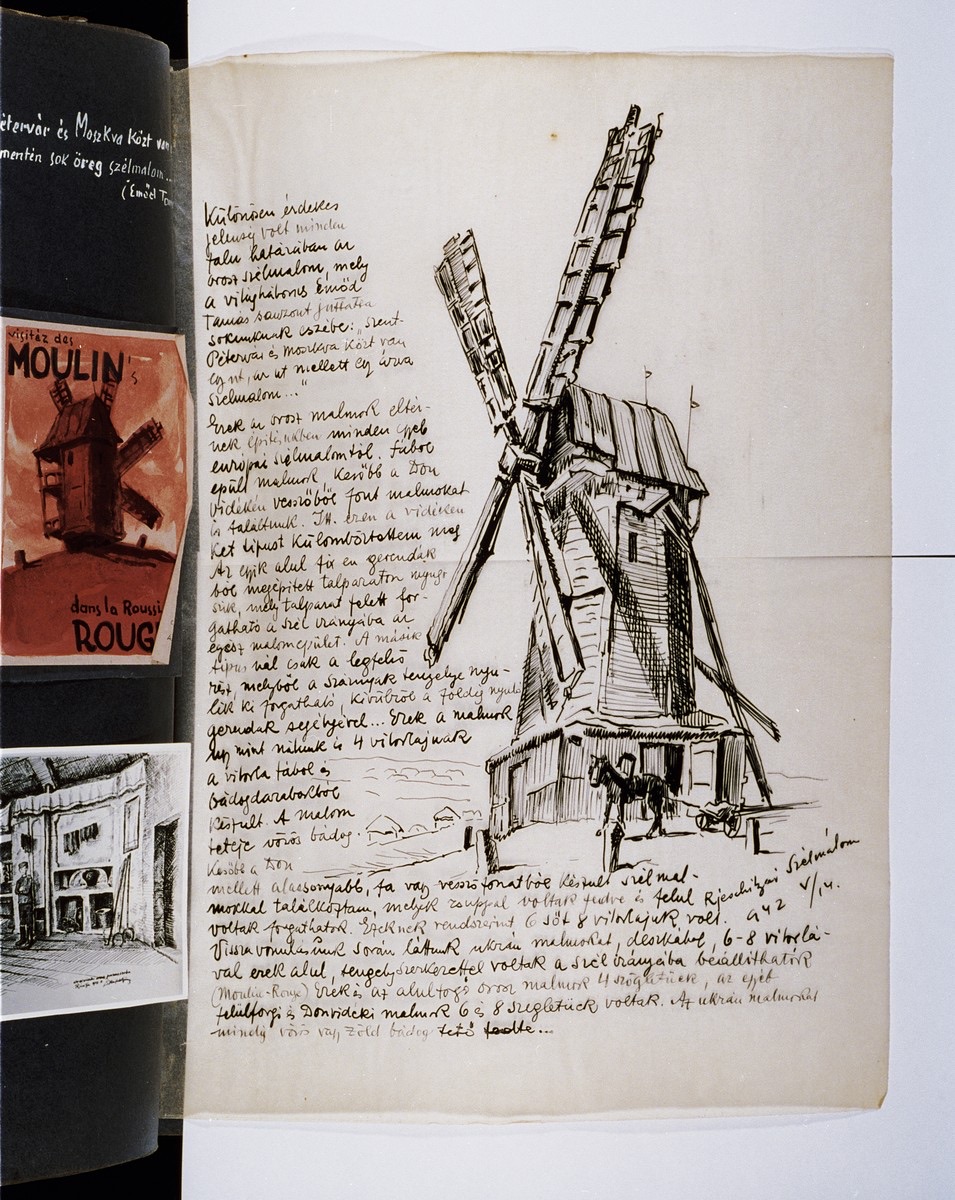 étervár és Moszkva közt van
mentén sok öreg szélmalom...
(Emőd Tam
visitéz des
MOULIN's
dans la Roussi
ROUG
Különösen érdekes
jelenség volt minden
falu határában az
orosz szélmalom, mely
a világháborus Emőd
Tamás sanzont juttatta
sokunknak eszébe: "Szent-
Pétervár és Moszkva közt van
egy út, az út mellett egy árva
szélmalom..."
Ezek az orosz malmok eltér-
nek építésükben minden egyéb
európai szélmalomtól. Fából
épült malmok. Később a Don
vidékén vesszőből font malmokat
is találtunk. Itt ezen a vidéken
két tipust külömböztettem meg
Az egyik alul fix en gerendák
ból megépitett talpazaton nyug-
szik, mely talpazat felett for-
gatható a szél irányába az
egész malomépület. A másik
tipus nál csak a legfelső
rész, melyből a szárnyak tengelye nyú-
lik ki forgatható, kivülről a földig nyuló
gerendák segitségével... Ezek a malmok
úgy mint nálunk is 4 vitorlájuak
a vitorla fából és
bádogdarabokból
készült. A malom
teteje vörös bádog.
Később a Don
mellett alacsonyabb, fa vagy vesszőfonatból készült szélmal-
mokkal találkoztam, melyek zsuppal voltak fedve és felul
voltak forgathatók. Ezeknek rendszerint 6 sőt 8 vitorlájuk volt.
Rjeschizai Szélmalom
942 V/14.
Visszavonulásunk során láttunk ukrán malmokat, deszkából, 6-8 vitorlá-
val ezek alul, tengelyszerkezettel voltak a szél irányába beállithatók
(Moulin-Rouge) Ezek és az alulforgó orosz malmok 4 szögletüek, az egyéb
felülforgó és Donvidéki malmok 6 és 8 szegletüek voltak. Az ukrán malmokat
mindig vörös vagy zöld bádog tető fedte...